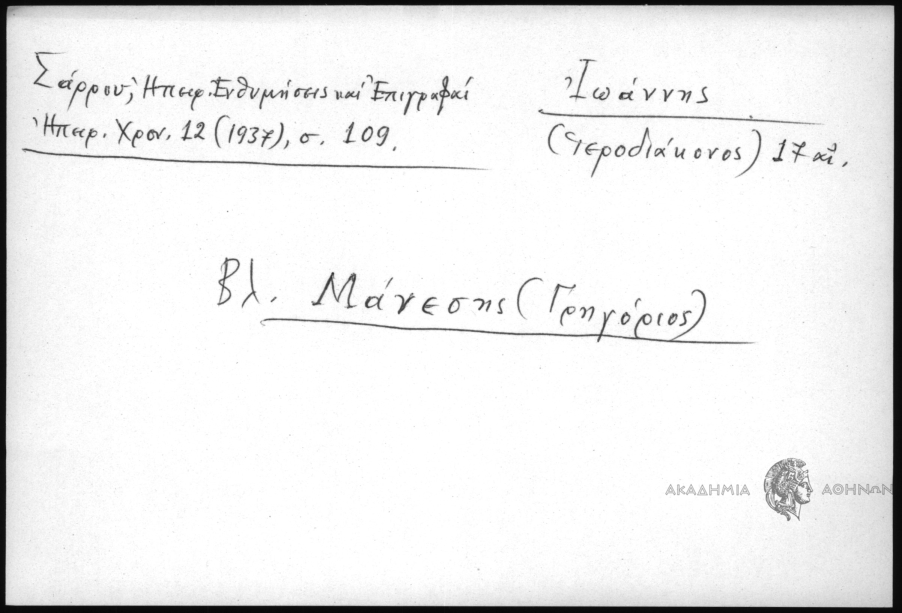 Σάρρου, Ἠπειρ. Ἐνθυμήσεις καὶ Ἐπιγραφαί
Ἠπειρ. Χρον. 12 (1937), σ. 109.
Ἰωάννης
(Ἱεροδιάκονος) 17 αἰ.
Βλ. Μάνεσης (Γρηγόριος)
ΑΚΑΔΗΜΙΑ ΑΘΗΝΩΝ